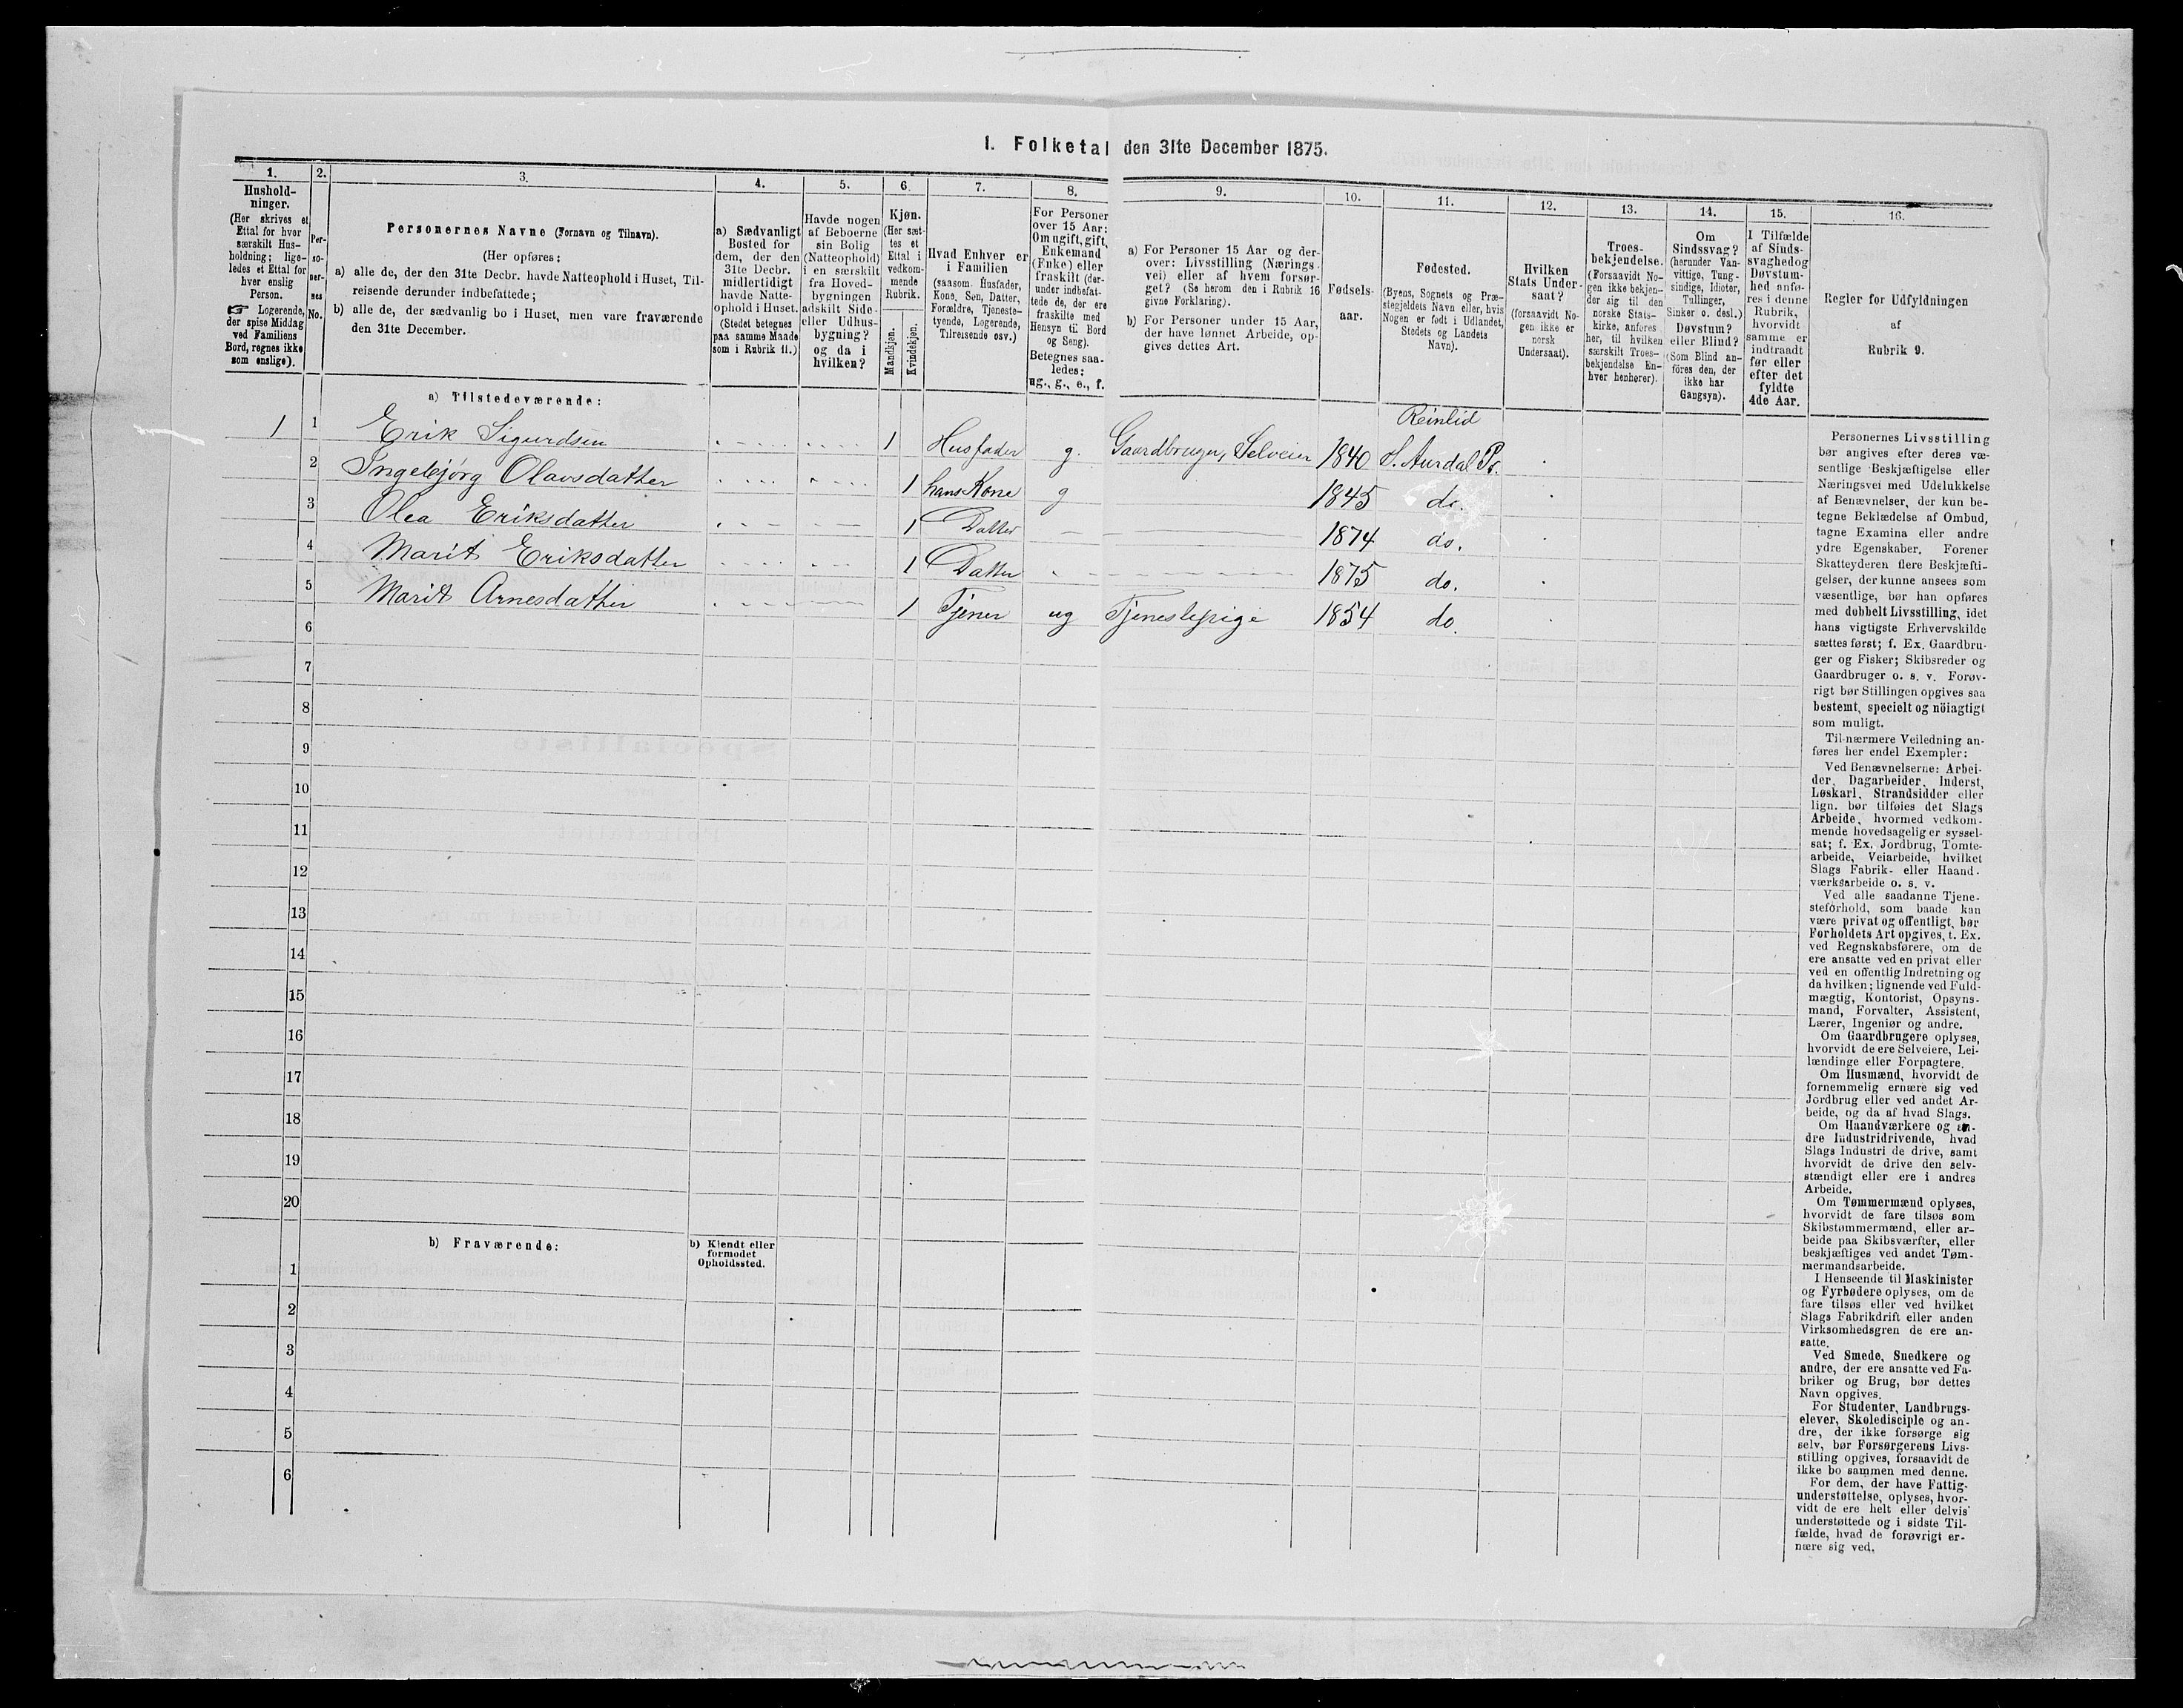 I. Folketal den 31te December 1875.
1.
2.
3.
4.
5.
6.
7.
8.
9.
10.
11.
12.
13.
14.
15.
16.
Hushold-
ninger.
(Her skrives et
Ettal for hver
særskilt Hus-
holdning; lige-
ledes et Ettal for
hver enslig
Person.
☞ Logerende,
der spise Middag
ved Familiens
Bord, regnes ikke
som enslige).
Per-
so-
ner-
nes
No.
Personernes Navne (Fornavn og Tilnavn).
(Her opføres:
a) alle de, der den 31te Decbr. havde Natteophold i Huset, Til-
reisende derunder indbefattede;
b) alle de, der sædvanlig bo i Huset, men vare fraværende
den 31te December.
a) Sædvanligt
Bosted for
dem, der den
31te Decbr.
midlertidigt
havde Natte-
ophold i Huset.
(Stedet betegnes
paa samme Maade
som i Rubrik 11.)
Havde nogen
af Beboerne
sin Bolig
(Natteophold)
i en særskilt
fra Hoved-
bygningen
adskilt Side-
eller Udhus-
bygning?
og da i
hvilken?
Kjøn.
(Her sæt-
tes et
Ettal i
vedkom-
mende
Rubrik.
Mandkjøn.
Kvindekjøn.
Hvad Enhver er
i Familien
(saasom Husfader,
Kone, Søn, Datter,
Forældre, Tjeneste-
tyende, Logerende,
Tilreisende osv.)
For Personer
over 15 Aar:
Om ugift, gift,
Enkemand
(Enke) eller
fraskilt (der-
under indbefat-
tede de, der ere
fraskilte med
Hensyn til Bord
og Seng).
Betegnes saa-
ledes:
ug., g., e., f.
a) For Personer 15 Aar og der-
over: Livsstilling (Nærings-
vei) eller af hvem forsør-
get? (Se herom den i Rubrik 16
givne Forklaring).
b) For Personer under 15 Aar,
der have lønnet Arbeide, op-
gives dettes Art.
Fødsels-
aar.
Fødested.
(Byens, Sognets og Præ-
stegjeldets Navn eller, hvis
Nogen er født i Udlandet,
Stedets og Landets
Navn).
Hvilken
Stats Under-
saat?
(forsaavidt No-
gen ikke er
norsk
Undersaat).
Troes-
bekjendelse.
(Forsaavidt No-
gen ikke bekjen-
der sig til den
norske Stats-
kirke, anføres
her, til hvilken
særskilt Troes-
bekjendelse En-
hver henhører).
Om
Sindssvag?
(herunder Van-
vittige, Tung-
sindige, Idioter,
Tullinger,
Sinker o. desl.)
Døvstum?
eller Blind?
(Som Blind an-
föres den, der
ikke har
Gangsyn).
I Tilfælde
af Sinds-
svaghed og
Døvstum-
hed anfø-
res i denne
Rubrik,
hvorvidt
samme er
indtraadt
før eller
efter det
fyldte
4de Aar.
Regler for Udfyldningen
af
Rubrik 9.
a) Tilstedeværende:
Reinlid
1 1 Erik Sigurdsen 1 Husfader g. Gaardbruger, Selveier 1840 S. Aurdal Pr.
2 Ingebjørg Olavsdatter 1 hans Kone g 1845 do.
3 Olea Eriksdatter 1 Datter 1874 do.
4 Marit Eriksdatter 1 Datter 1875 do.
5 Marit Arnesdatter 1 Tjener ug Tjenestepige 1854 do.
6
7
8
9
10
11
12
13
14
15
16
17
18
19
20
b) Fraværende:
b) Kjendt eller
formodet
Opholdssted.
1
2
3
4
5
6
Personernes Livsstilling
bør angives efter deres væ-
sentlige Beskjæftigelse eller
Næringsvei med Udelukkelse
af Benævnelser, der kun be-
tegne Beklædelse af Ombud,
tagne Examina eller andre
ydre Egenskaber. Forener
Skatteyderen flere Beskjæfti-
gelser, der kunne ansees som
væsentlige, bør han opføres
med dobbelt Livsstilling, idet
hans vigtigste Erhvervskilde
sættes først; f. Ex. Gaardbru-
ger og Fisker; Skibsreder og
Gaardbruger o. s. v. Forøv-
rigt bør Stillingen opgives saa
bestemt, specielt og nöiagtigt
som muligt.
Til nærmere Veiledning an-
føres her endel Exempler:
Ved Benævnelserne: Arbei-
der, Dagarbeider, Inderst,
Løskarl, Strandsidder eller
lign. bør tilføies det Slags
Arbeide, hvormed vedkom-
mende hovedsagelig er syssel-
sat; f. Ex. Jordbrug, Tomte-
arbeide, Veiarbeide, hvilket
Slags Fabrik- eller Haand-
værksarbeide o. s. v.
Ved alle saadanne Tjene-
steforhold, som baade kan
være privat og offentligt, bør
Forholdets Art opgives, t. Ex.
ved Regnskabsførere, om de
ere ansatte ved en privat eller
ved en offentlig Indretning og
da hvilken; lignende ved Fuld-
mægtig, Kontorist, Opsyns-
mand, Forvalter, Assistent,
Lærer, Ingeniør og andre.
Om Gaardbrugere oplyses,
hvorvidt de ere Selveiere, Lei-
lændinge eller Forpagtere.
Om Husmænd, hvorvidt de
fornemmelig ernære sig ved
Jordbrug eller ved andet Ar-
beide, og da af hvad Slags.
Om Haandværkere og an-
dre Industridrivende, hvad
Slags Industri de drive, samt
hvorvidt de drive den selv-
stændigt eller ere i andres
Arbeide.
Om Tømmermænd oplyses,
hvorvidt de fare tilsøs som
Skibstømmermænd, eller ar-
beide paa Skibsværfter, eller
beskjæftiges ved andet Tøm-
mermandsarbeide.
I Henseende til Maskinister
og Fyrbødere oplyses, om de
fare tilsøs eller ved hvilket
Slags Fabrikdrift eller anden
Virksomhedsgren de ere an-
satte.
Ved Smede, Snedkere og
andre, der ere ansatte ved Fa-
briker og Brug, bør dettes
Navn opgives.
For Studenter, Landbrugs-
elever, Skoledisciple og an-
dre, der ikke forsørge sig
selv, bør Forsørgerens Livs-
stilling opgives, forsaavidt de
ikke bo sammen med denne.
For dem, der have Fattig-
understøttelse, oplyses, hvor-
vidt de ere helt eller delvis
understøttede og i sidste Til-
fælde, hvad de forøvrigt er-
nære sig ved.